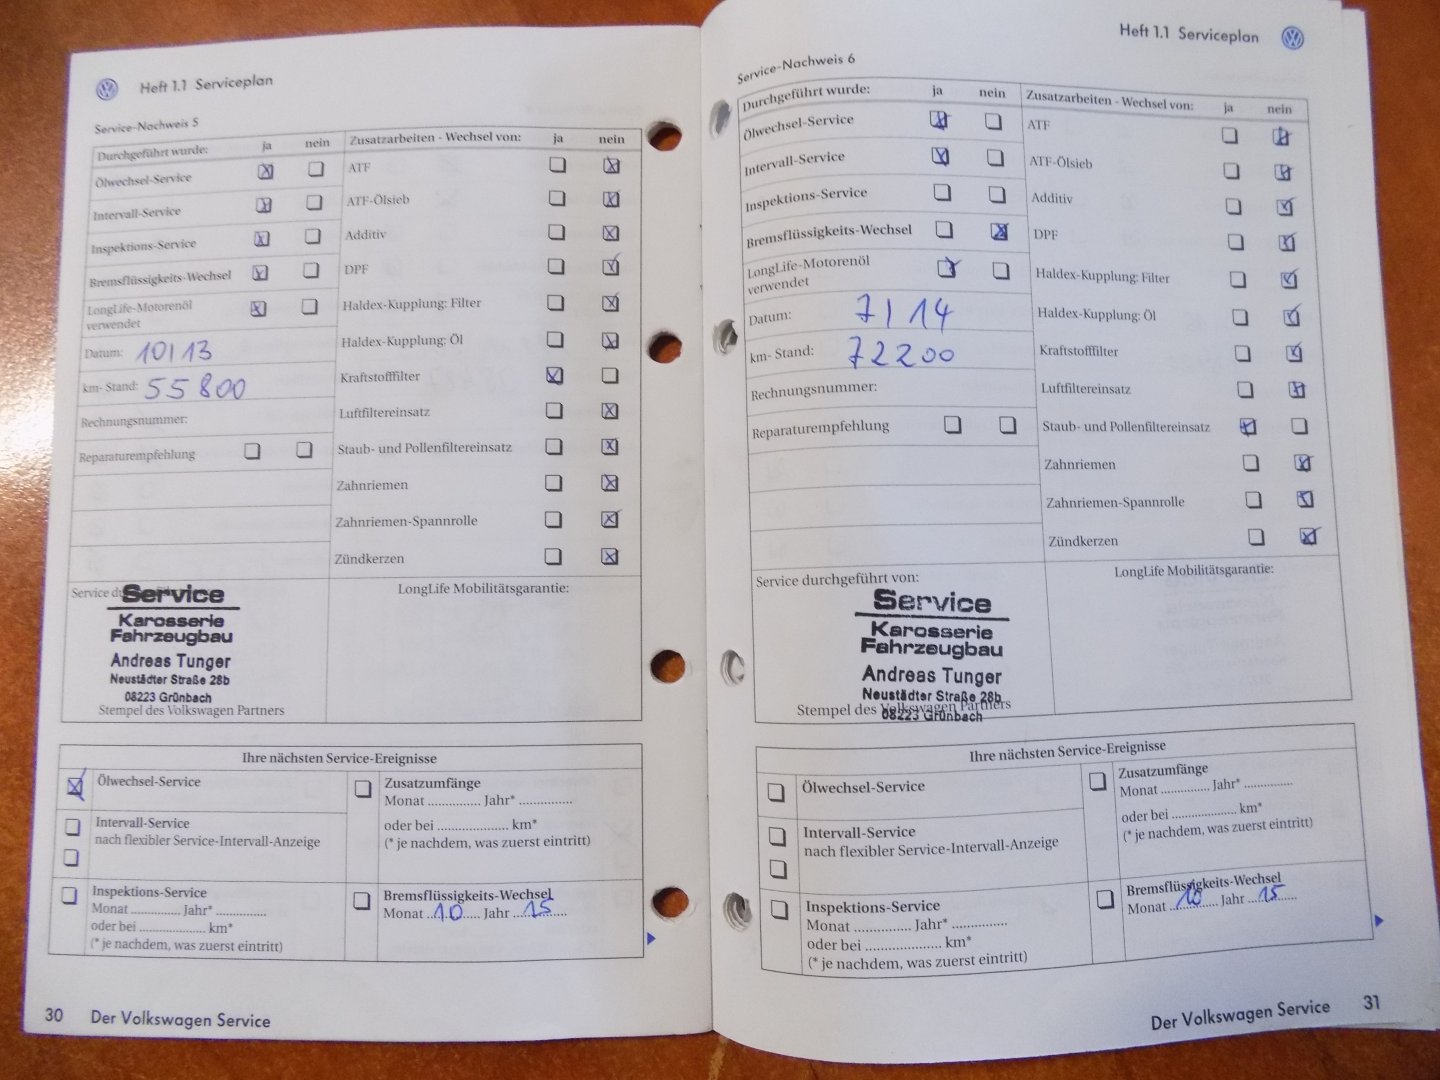 Heft 1.1 Serviceplan
Service-Nachweis 5
Durchgeführt wurde: ja nein
Ölwechsel-Service
Intervall-Service
Inspektions-Service
Bremsflüssigkeits-Wechsel
LongLife-Motorenöl
verwendet
Datum: 10/13
km- Stand: 55800
Rechnungsnummer:
Reparaturempfehlung
Zusatzarbeiten - Wechsel von: ja nein
ATF
ATF-Ölsieb
Additiv
DPF
Haldex-Kupplung: Filter
Haldex-Kupplung: Öl
Kraftstofffilter
Luftfiltereinsatz
Staub- und Pollenfiltereinsatz
Zahnriemen
Zahnriemen-Spannrolle
Zündkerzen
Service
Service
Karosserie
Fahrzeugbau
Andreas Tunger
Neustädter Straße 28b
08223 Grünbach
Stempel des Volkswagen Partners
LongLife Mobilitätsgarantie:
Ihre nächsten Service-Ereignisse
Ölwechsel-Service
Intervall-Service
nach flexibler Service-Intervall-Anzeige
Inspektions-Service
Monat .............. Jahr* ..............
oder bei ................... km*
(* je nachdem, was zuerst eintritt)
Zusatzumfänge
Monat .............. Jahr* ..............
oder bei ................... km*
(* je nachdem, was zuerst eintritt)
Bremsflüssigkeits-Wechsel
Monat ..10.... Jahr ...15....
30 Der Volkswagen Service
Heft 1.1 Serviceplan
Service-Nachweis 6
Durchgeführt wurde: ja nein
Ölwechsel-Service
Intervall-Service
Inspektions-Service
Bremsflüssigkeits-Wechsel
LongLife-Motorenöl
verwendet
Datum: 7/14
km- Stand: 72200
Rechnungsnummer:
Reparaturempfehlung
Zusatzarbeiten - Wechsel von: ja nein
ATF
ATF-Ölsieb
Additiv
DPF
Haldex-Kupplung: Filter
Haldex-Kupplung: Öl
Kraftstofffilter
Luftfiltereinsatz
Staub- und Pollenfiltereinsatz
Zahnriemen
Zahnriemen-Spannrolle
Zündkerzen
Service durchgeführt von:
Service
Karosserie
Fahrzeugbau
Andreas Tunger
Neustädter Straße 28b
Stempel des Volkswagen Partners
08223 Grünbach
LongLife Mobilitätsgarantie:
Ihre nächsten Service-Ereignisse
Ölwechsel-Service
Intervall-Service
nach flexibler Service-Intervall-Anzeige
Inspektions-Service
Monat .............. Jahr* ..............
oder bei ................... km*
(* je nachdem, was zuerst eintritt)
Zusatzumfänge
Monat .............. Jahr* ..............
oder bei ................... km*
(* je nachdem, was zuerst eintritt)
Bremsflüssigkeits-Wechsel
Monat ..10.... Jahr ...15....
Der Volkswagen Service 31